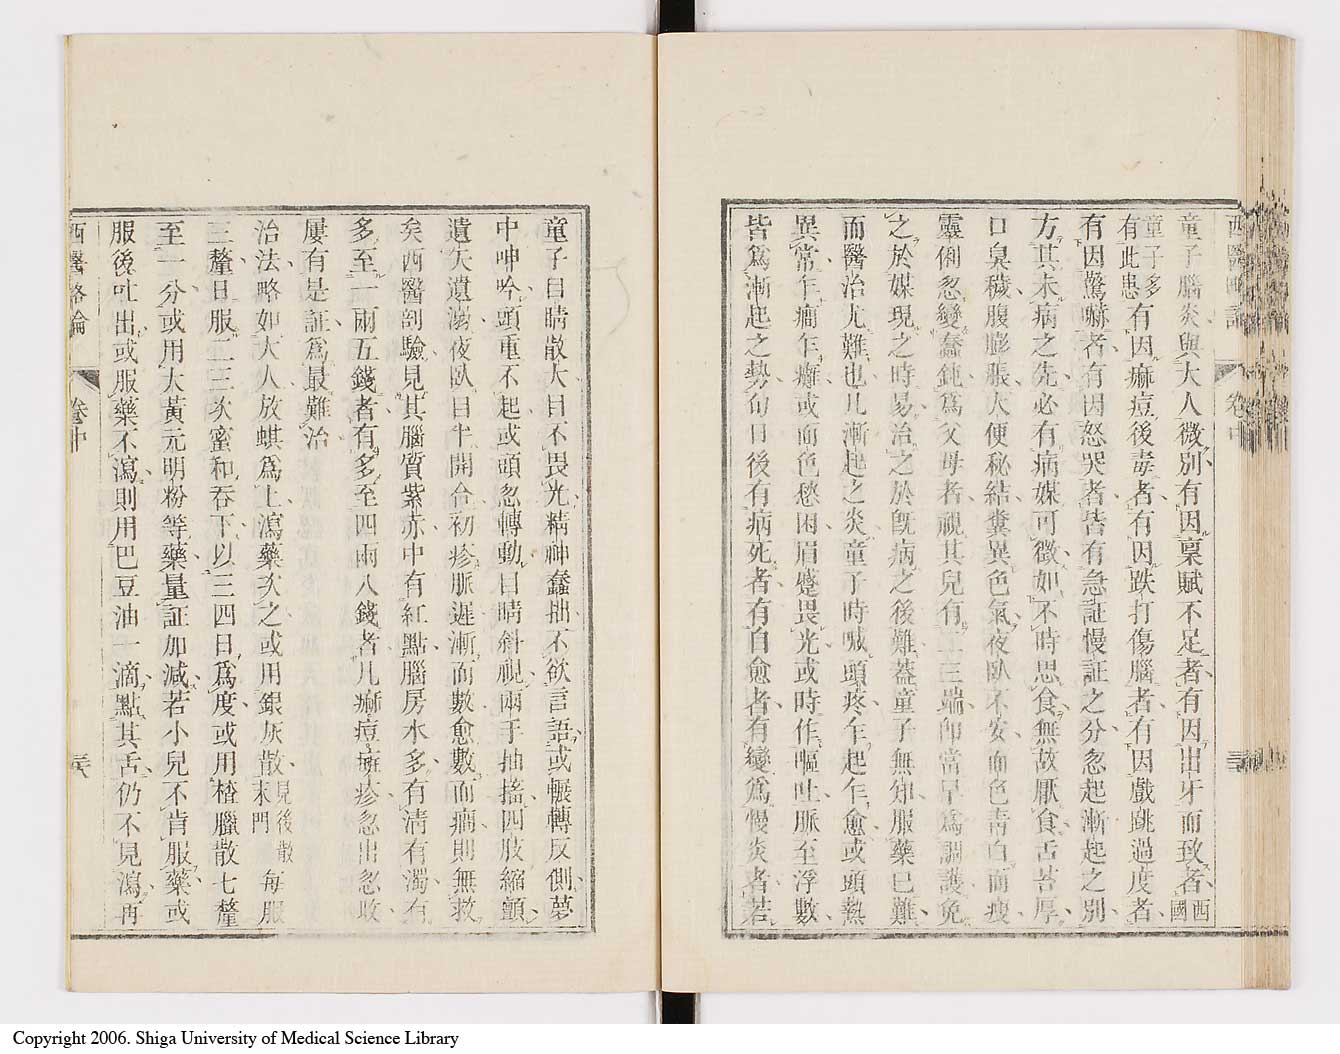 童子腦炎與大人微別有因稟賦不足者有因出牙而致者西國
童子多有此患有因痲痘後毒者有因跌打傷腦者有因戲跳過度者
有因驚嚇者有因怒哭者皆有急証慢証之分忽起漸起之別
方其未病之先必有病媒可徵如不時思食無故厭食舌苔厚
口臭穢腹膨脹大便秘結糞異色氣夜臥不安面色青白而瘦
靈俐忽變蠢鈍為父母者視其兒有一二三端即當早為調護免
之於媒現之時易治之於既病之後難蓋童子無知服藥已難
而醫治尤難也凡漸起之炎童子時喊頭疼乍起乍愈或頭熱
異常乍癎乍癱或面色愁困眉蹙畏光或時作嘔吐脈至浮數
皆爲漸起之勢旬日後有病死者有自愈者有變爲慢炎者若
童子目睛散大目不畏光精神蠢拙不欲言語或輾轉反側夢
中呻吟頭重不起或頭忽轉動目睛斜視兩手抽搐四肢縮顫
遺矢遺溺夜臥目半開合初疹脈遲漸而數愈數而癎則無救
矣西醫剖驗見其腦質紫赤中有紅點腦房水多有清有濁有
多至一兩五錢者有多至四兩八錢者凡痲痘斑疹忽出忽收
屢有是証爲最難治
治法略如大人放蜞爲上瀉藥次之或用銀灰散見後散末門每服
三釐日服二三次蜜和吞下以三四日爲度或用楂臘散七釐
至一分或用大黃元明粉等藥量証加減若小兒不肯服藥或
服後吐出或服藥不瀉則用巴豆油一滴點其舌仍不見瀉再
西醫略論
卷中